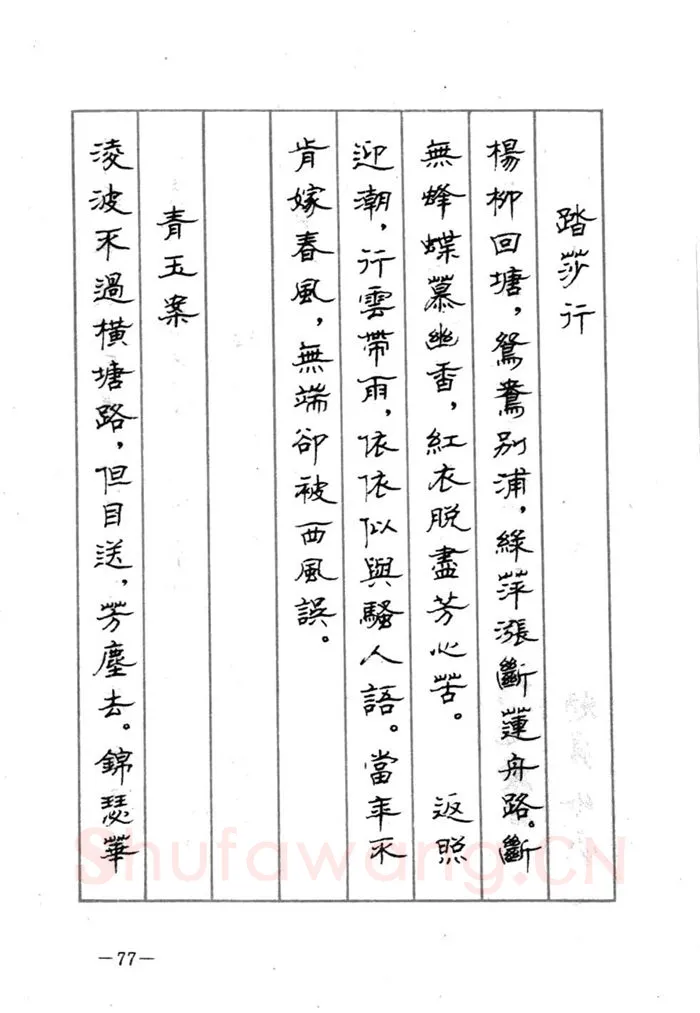 踏莎行
楊柳回塘，鴛鴦別浦，綠萍漲斷蓮舟路。斷
無蜂蝶慕幽香，紅衣脫盡芳心苦。　返照
迎潮，行雲帶雨，依依似與騷人語。當年不
肯嫁春風，無端卻被西風誤。
青玉案
淩波不過橫塘路，但目送，芳塵去。錦瑟華
Shufawang.CN
—77—